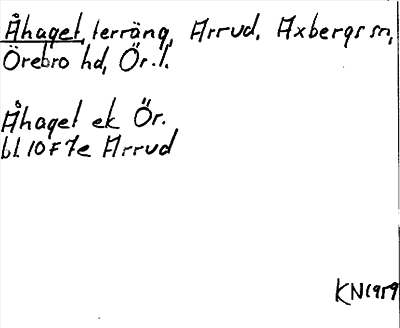 Åhaget, terräng, Arrud, Axbergs sn,
Örebro hd, Ör. l.
Åhaget ek Ör.
bl 10F 7e Arrud
KN 1959